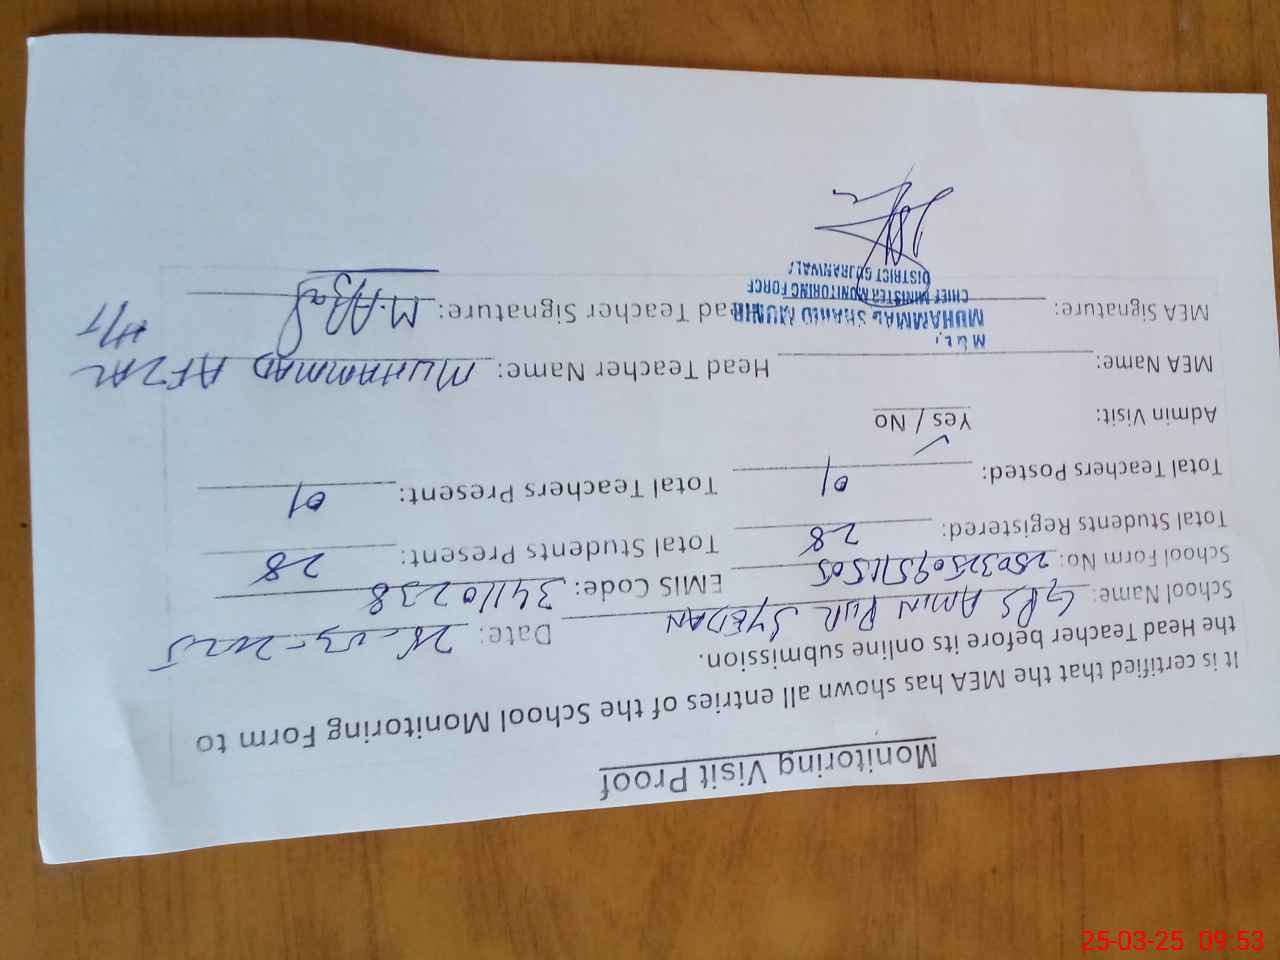 Monitoring Visit Proof
It is certified that the MEA has shown all entries of the School Monitoring Form to
the Head Teacher before its online submission. Date: 25-03-2025
School Name: GPS AMIN PUR SYEDAN
School Form No: EMIS Code: 34110238
Total Students Registered: 28 Total Students Present: 28
Total Teachers Posted: 01 Total Teachers Present: 01
Admin Visit: Yes / No
MEA Name: Head Teacher Name: MUHAMMAD AFZAL
H/T
MEA Signature: Head Teacher Signature: M.Afzal
MUHAMMAD SHAHID MUNIR
CHIEF MINISTER MONITORING FORCE
DISTRICT GUJRANWALA
25-03-25 09:53